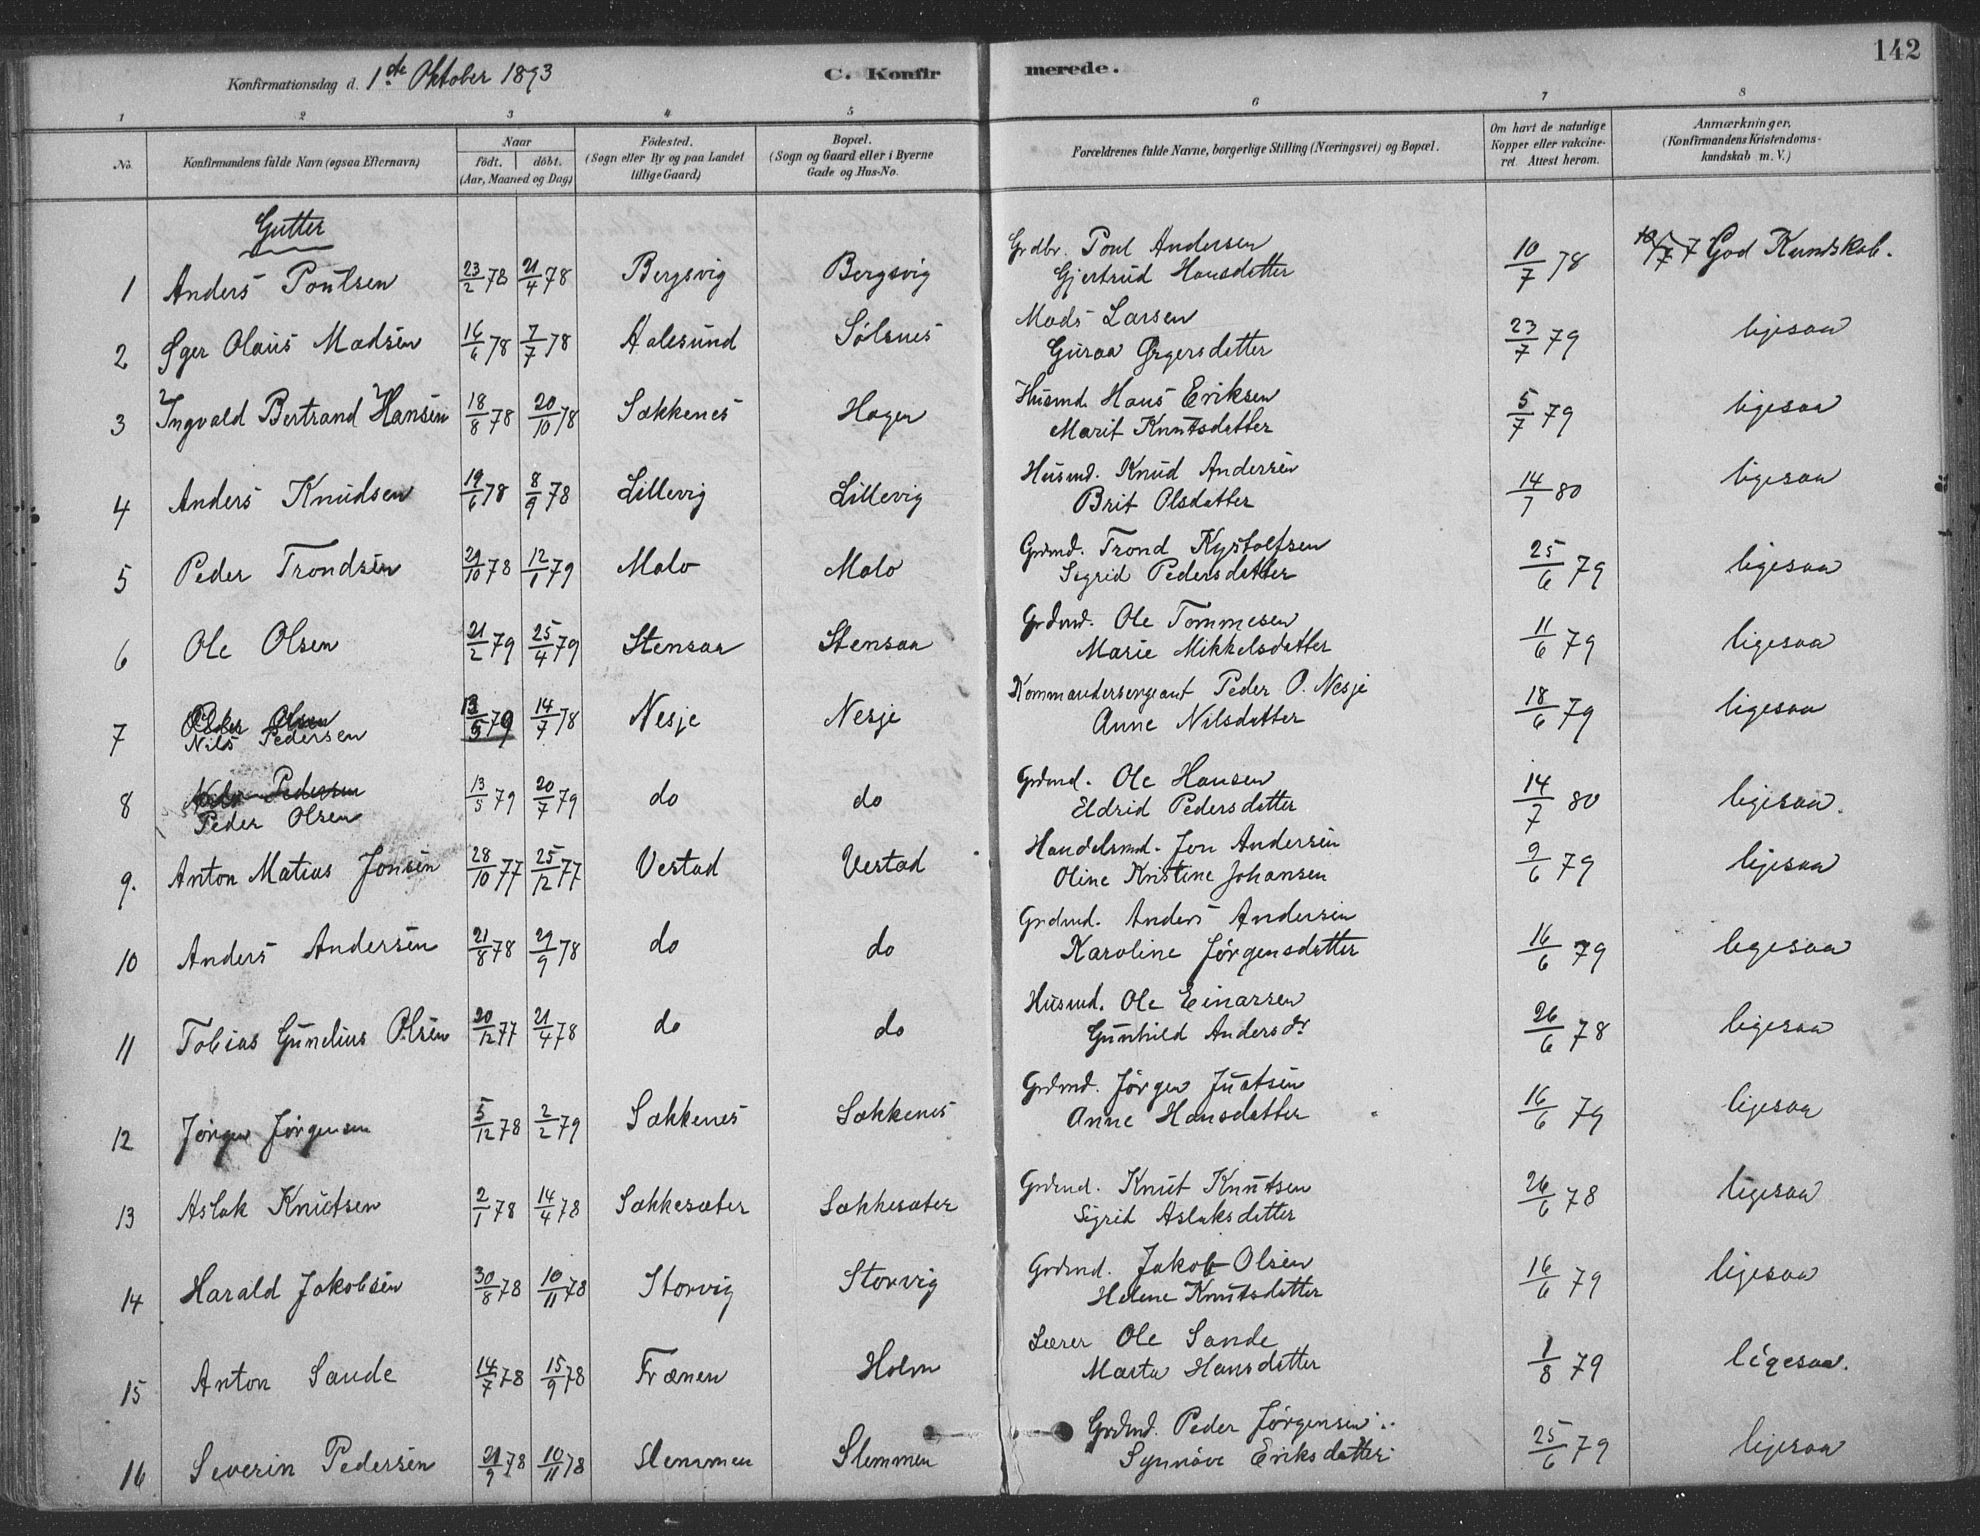 142
Konfirmationsdag d. 1ste Oktober 1893 C. Konfirmerede.
1 2 3 4 5 6 7 8
No. Konfirmandens fulde Navn (ogsaa Efternavn) Naar født. døbt. (Aar, Maaned og Dag) Fødested. (Sogn eller By og paa Landet tillige Gaard) Bopæl. (Sogn og Gaard eller i Byerne Gade og Hus-No. Forældrenes fulde Navne, borgerlige Stilling (Næringsvei) og Bopæl. Om havt de naturlige Kopper eller vakcineret. Attest herom. Anmærkninger. (Konfirmandens Kristendomskundskab m. V.)
Gutter
1 Anders Poulsen 23/2 78 21/4 78 Bergsvig Bergsvig Grdbr. Poul Andersen Gjertrud Hansdatter 10/7 78 God Kundskab.
2 Øger Olaus Madsen 16/6 78 7/7 78 Aalesund Sølsnes Mads Larsen Guraa Øgersdatter 23/7 79 ligesaa
3 Ingvald Bertrand Hansen 18/8 78 20/10 78 Sækkenes Hagen Husmd. Hans Eriksen Marit Knutsdatter 5/7 79 ligesaa
4 Anders Knudsen 19/6 78 8/9 78 Lillevig Lillevig Husmd. Knud Andersen Brit Olsdatter 14/7 80 ligesaa
5 Peder Trondsen 21/10 78 12/1 79 Malo Malo Grdmd. Trond Kystolfsen Sigrid Pedersdatter 25/6 79 ligesaa
6 Ole Olsen 21/2 79 25/4 79 Stensaa Stensaa Grdmd. Ole Tommesen Marie Mikkelsdatter 11/6 79 ligesaa
7 Peder Olsen Nils Pedersen 13/5 79 14/7 78 Nesje Nesje Kommandersergeant Peder O. Nesje Anne Nilsdatter 18/6 79 ligesaa
8 Nils Pedersen Peder Olsen 13/5 79 20/7 79 do do Grdmd. Ole Hansen Eldrid Pedersdatter 14/7 80 ligesaa.
9. Anton Matias Jonsen 28/10 77 25/12 77 Vestad Vestad Handelsmd. Jon Andersen Oline Kristine Johansen 9/6 79 ligesaa
10 Anders Andersen 21/8 78 29/9 78 do do Grdmd. Anders Andersen Karoline Jørgensdatter 16/6 79 ligesaa
11 Tobias Gundius Olsen 20/12 77 21/4 78 do do Husmd. Ole Einarsen Gunhild Andersdr 26/6 78 ligesaa
12 Jørgen Jørgensen 5/12 78 2/2 79 Sækkenes Sækkenes Grdmd. Jørgen Justsen Anne Hansdatter 16/6 79 ligesaa
13 Aslak Knutsen 2/1 78 14/4 78 Sækkesæter Sækkesæter Grdmd. Knut Knutsen Sigrid Aslaksdatter 26/6 78 ligesaa
14 Harald Jakobsen 30/8 78 10/11 78 Storvig Storvig Grdmd. Jakob Olsen Helene Knutsdatter 16/6 79 ligesaa
15 Anton Sande 14/7 78 15/9 78 Frænen Holm Lærer Ole Sande Marta Hansdatter 1/8 79 ligesaa.
16 Severin Pedersen 21/9 78 10/11 78 Slemmen Slemmen Grdmd. Peder Jørgensen Synnøve Eriksdatter 25/6 79 ligesaa